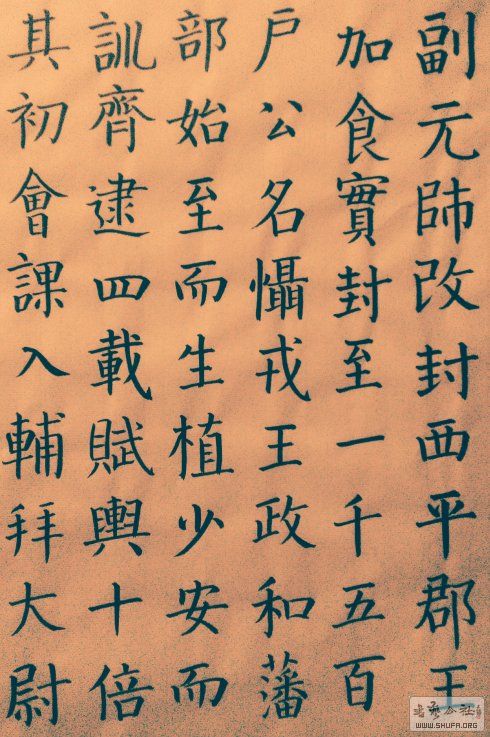 副元帥改封西平郡王
加食實封至一千五百
户公名懾戎王政和藩
部始至而生植少安而
訓齊逮四載賦輿十倍
其初會課入輔拜大尉
WWW.SHUFA.ORG